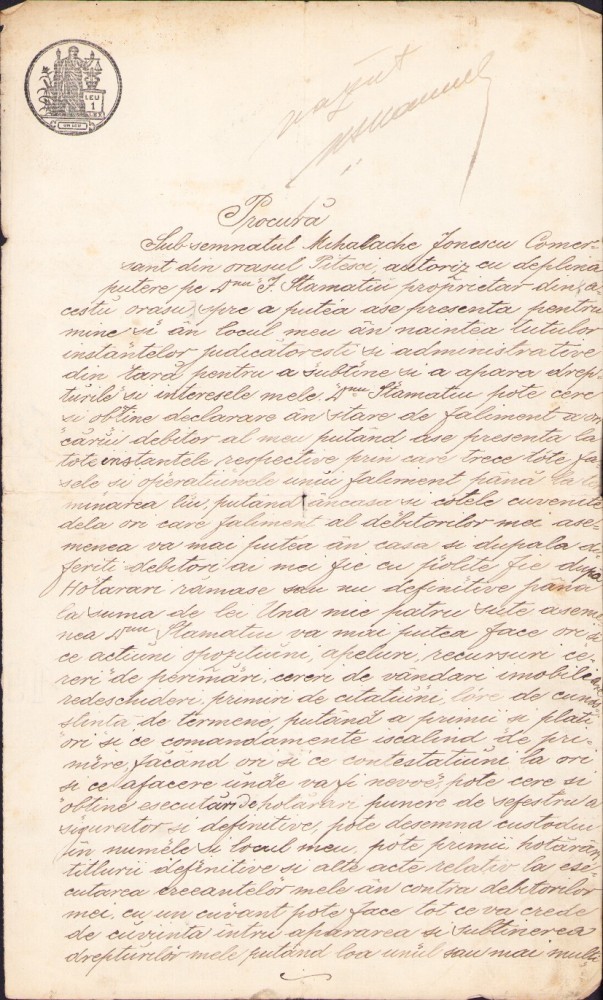 LEU
1
UN LEU
văzut
Procură
Subsemnatul Mihalache Jonescu Comer-
sant din orasul Pitesci, autoriz cu deplina
putere pe Dnu J. Stamatiu proprietar din a
cestu orasu, spre a putéa ase presenta pentru
mine si ân locul meu ân naintea tutulor
instantelor judicătoresti si administrative
din tară pentru a sustine si a apara drep-
turile si interesele mele Dnu Stamatiu pote cere
si obtine declarare ân stare de faliment a ori
căriu debitor al meu putând ase presenta la
tote instantele respective prin care trece tote fa
sele si operatiunele unui faliment până la ter
minarea lui, putând âncasa si cotele cuvenite
dela ori care faliment al debitorilor mei ase-
menea va mai putéa ân casa si dupala di
feriti debitori ai mei fie cu polite fie după
Hotarari rămase sau nu definitive pana
la suma de lei Una mie patru sute asem
nea Dnu Stamatiu va mai putea face ori si
ce actiuni opozitiuni, apeluri, recursuri ce-
reri de perimări, cereri de vândari imobile
redeschideri, primiri de citatiuni, luare de cuno
stinta de termene, putând a primii si plati
ori si ce comandamente iscalind de pri-
mire, facand ori si ce contestatiuni la ori
si ce afacere unde va fi nevoe, pote cere si
obtine esecutări de hotărari punere de sefestru a
sigurator si definitive, pote desemna custodu
ân numele si locul meu, pote primii hotărâri
titluri definitive si alte acte relativ la ese-
cutarea creeantelor mele ân contra debitorilor
mei, cu un cuvant pote face tot ce va crede
de cuvinta întru apararea si sustinerea
drepturilor mele putând loa unul sau mai multi